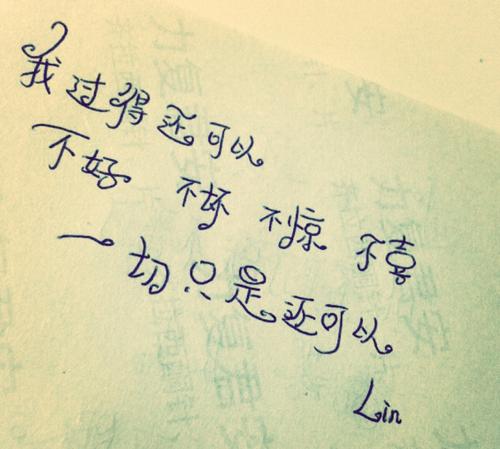 我过得还可以
不好 不坏 不惊 不喜
一切只是还可以
Lin